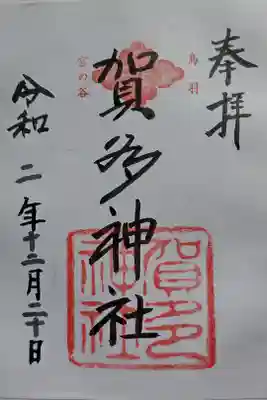 奉拝
鳥羽
賀多神社
宮の谷
令和二年十二月二十日
賀多
神社